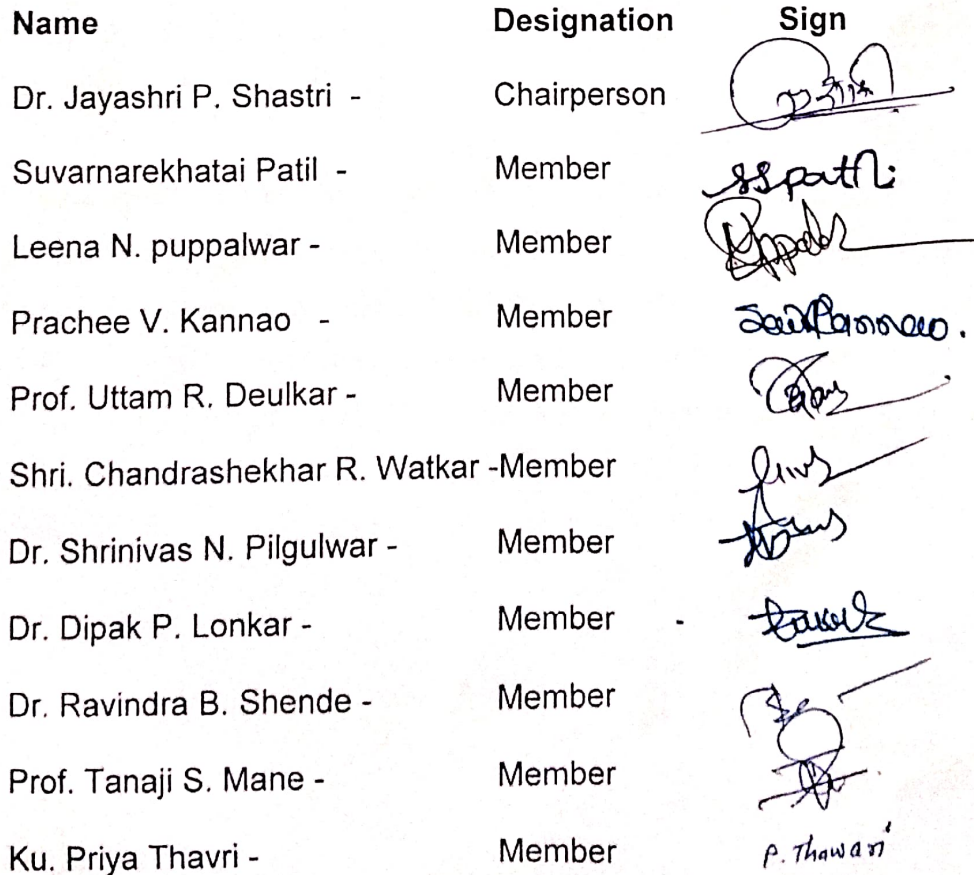 Name Designation Sign
Dr. Jayashri P. Shastri - Chairperson
Suvarnarekhatai Patil - Member sspatil
Leena N. puppalwar - Member
Prachee V. Kannao - Member
Prof. Uttam R. Deulkar - Member
Shri. Chandrashekhar R. Watkar -Member
Dr. Shrinivas N. Pilgulwar - Member
Dr. Dipak P. Lonkar - Member
Dr. Ravindra B. Shende - Member
Prof. Tanaji S. Mane - Member
Ku. Priya Thavri - Member P. Thawari